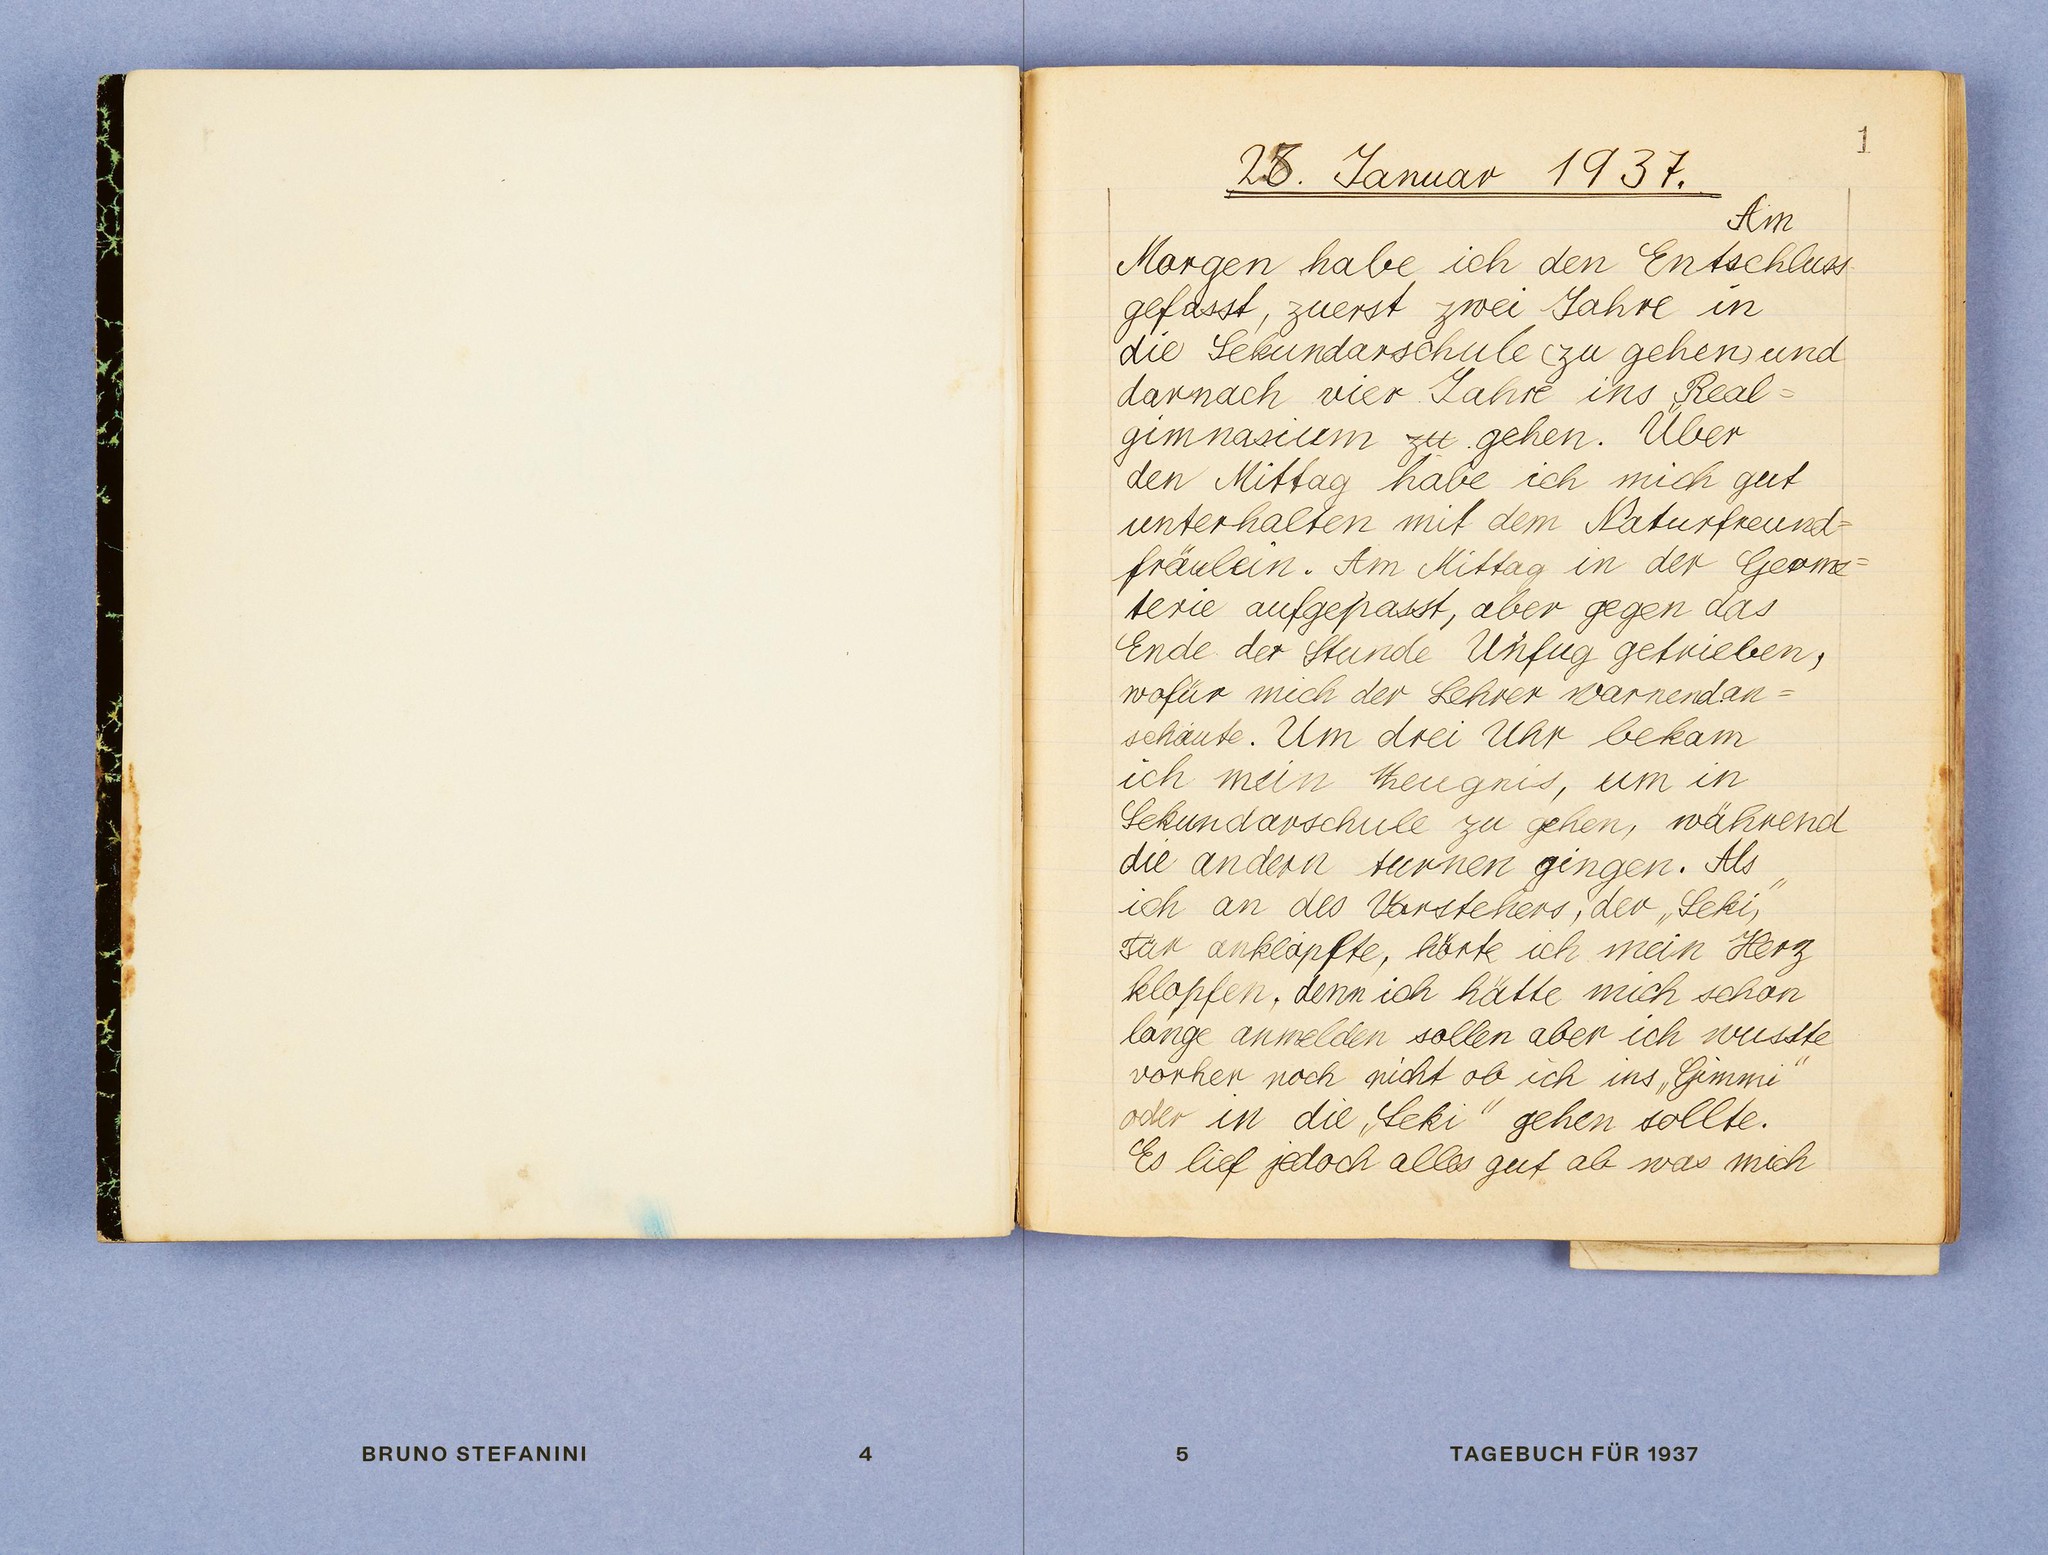 1
28. Januar 1937.
Am
Morgen habe ich den Entschluss
gefasst, zuerst zwei Jahre in
die Sekundarschule (zu gehen) und
darnach vier Jahre ins Real=
gimnasium zu gehen. Über
den Mittag habe ich mich gut
unterhalten mit dem Naturfreund=
fräulein. Am Mittag in der Geome=
terie aufgepasst, aber gegen das
Ende der Stunde Unfug getrieben,
wofür mich der Lehrer warnend an=
schaute. Um drei Uhr bekam
ich mein Zeugnis, um in
Sekundarschule zu gehen, während
die andern turnen gingen. Als
ich an des Vorstehers, der „Seki“,
Tür anklopfte, hörte ich mein Herz
klopfen, denn ich hätte mich schon
lange anmelden sollen aber ich wusste
vorher noch nicht ob ich ins „Gimmi“
oder in die „Seki“ gehen sollte.
Es lief jedoch alles gut ab was mich
BRUNO STEFANINI 4
5 TAGEBUCH FÜR 1937